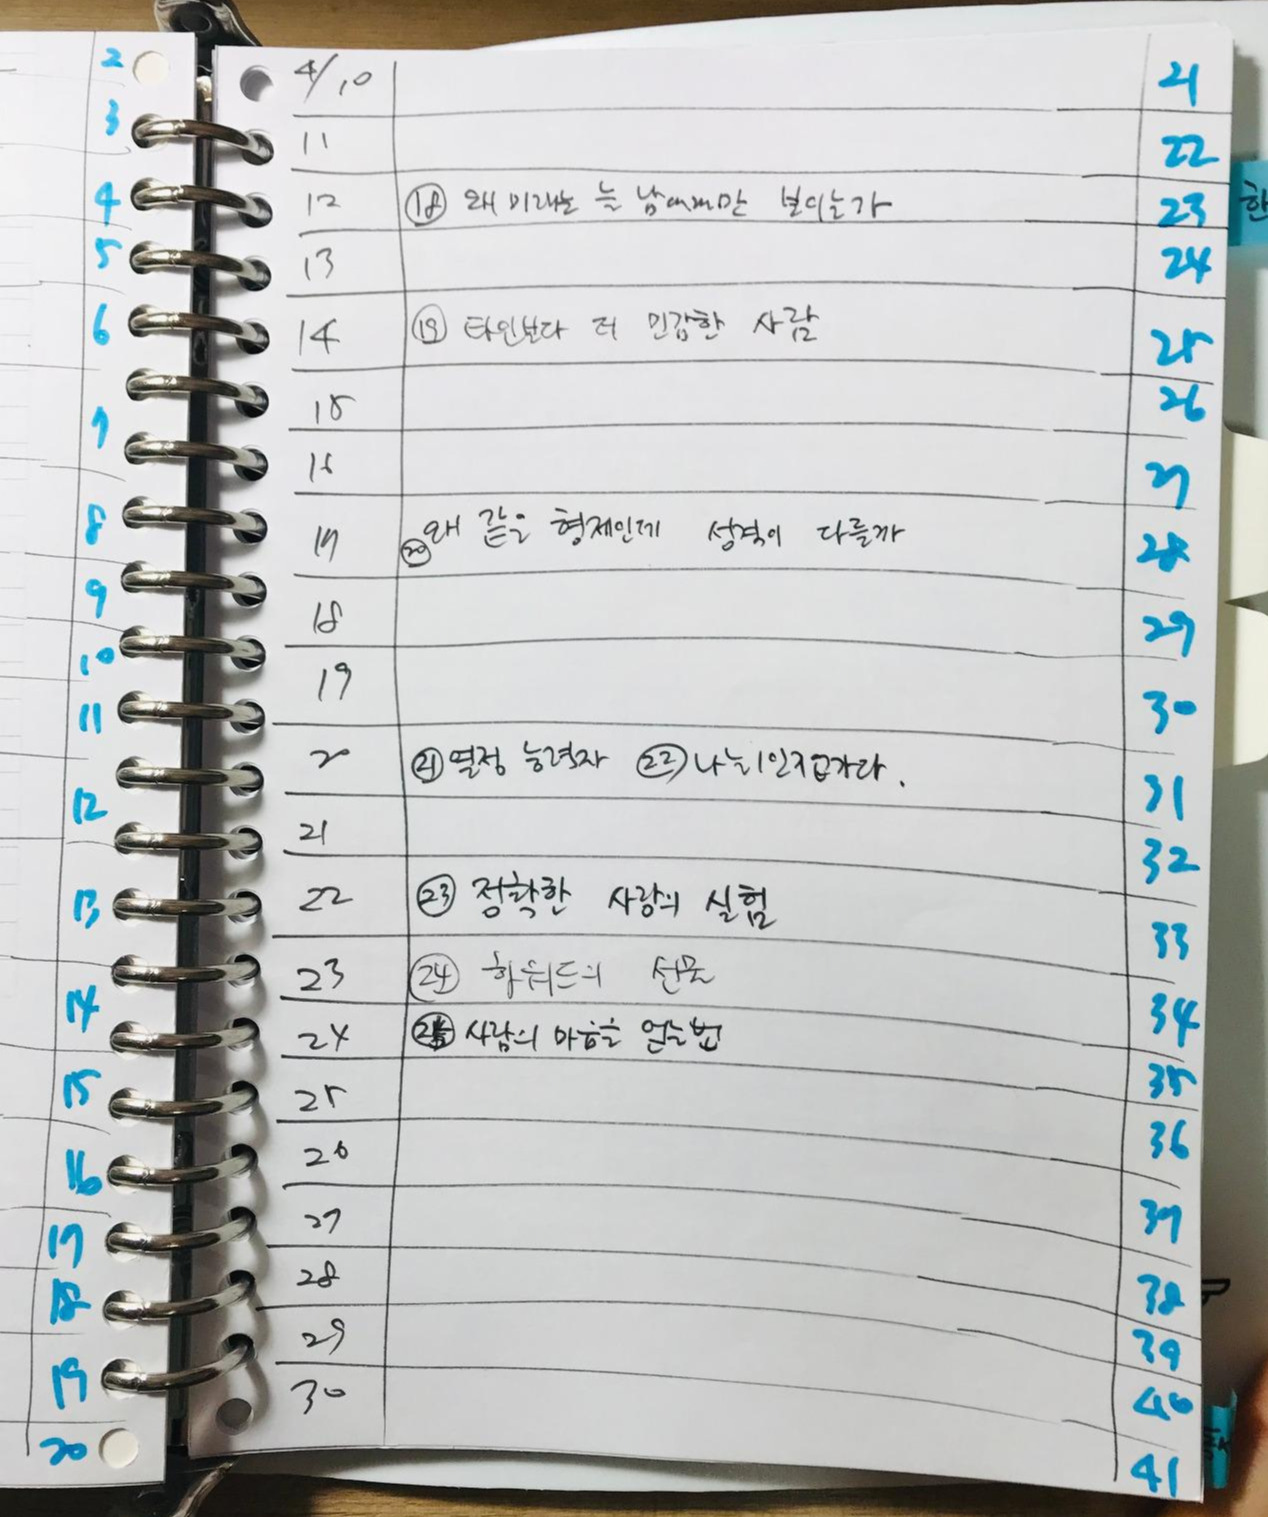 2
3
4
5
6
7
8
9
10
11
12
13
14
15
16
17
18
19
20
4/10 21
11 22
12 ⑱ 왜 미래는 늘 남에게만 보이는가 23
13 24
14 ⑲ 타인보다 더 민감한 사람 25
15 26
16 27
17 ⑳ 왜 같은 형제인데 성격이 다를까 28
18 29
19 30
20 ㉑ 열정 능력자 ㉒ 31
21 32
22 ㉓ 정확한 사랑의 실험 33
23 ㉔ 하워드의 선물 34
24 ㉕ 사람의 마음을 얻는 법 35
25 36
26 37
27 38
28 39
29 40
30 41
한